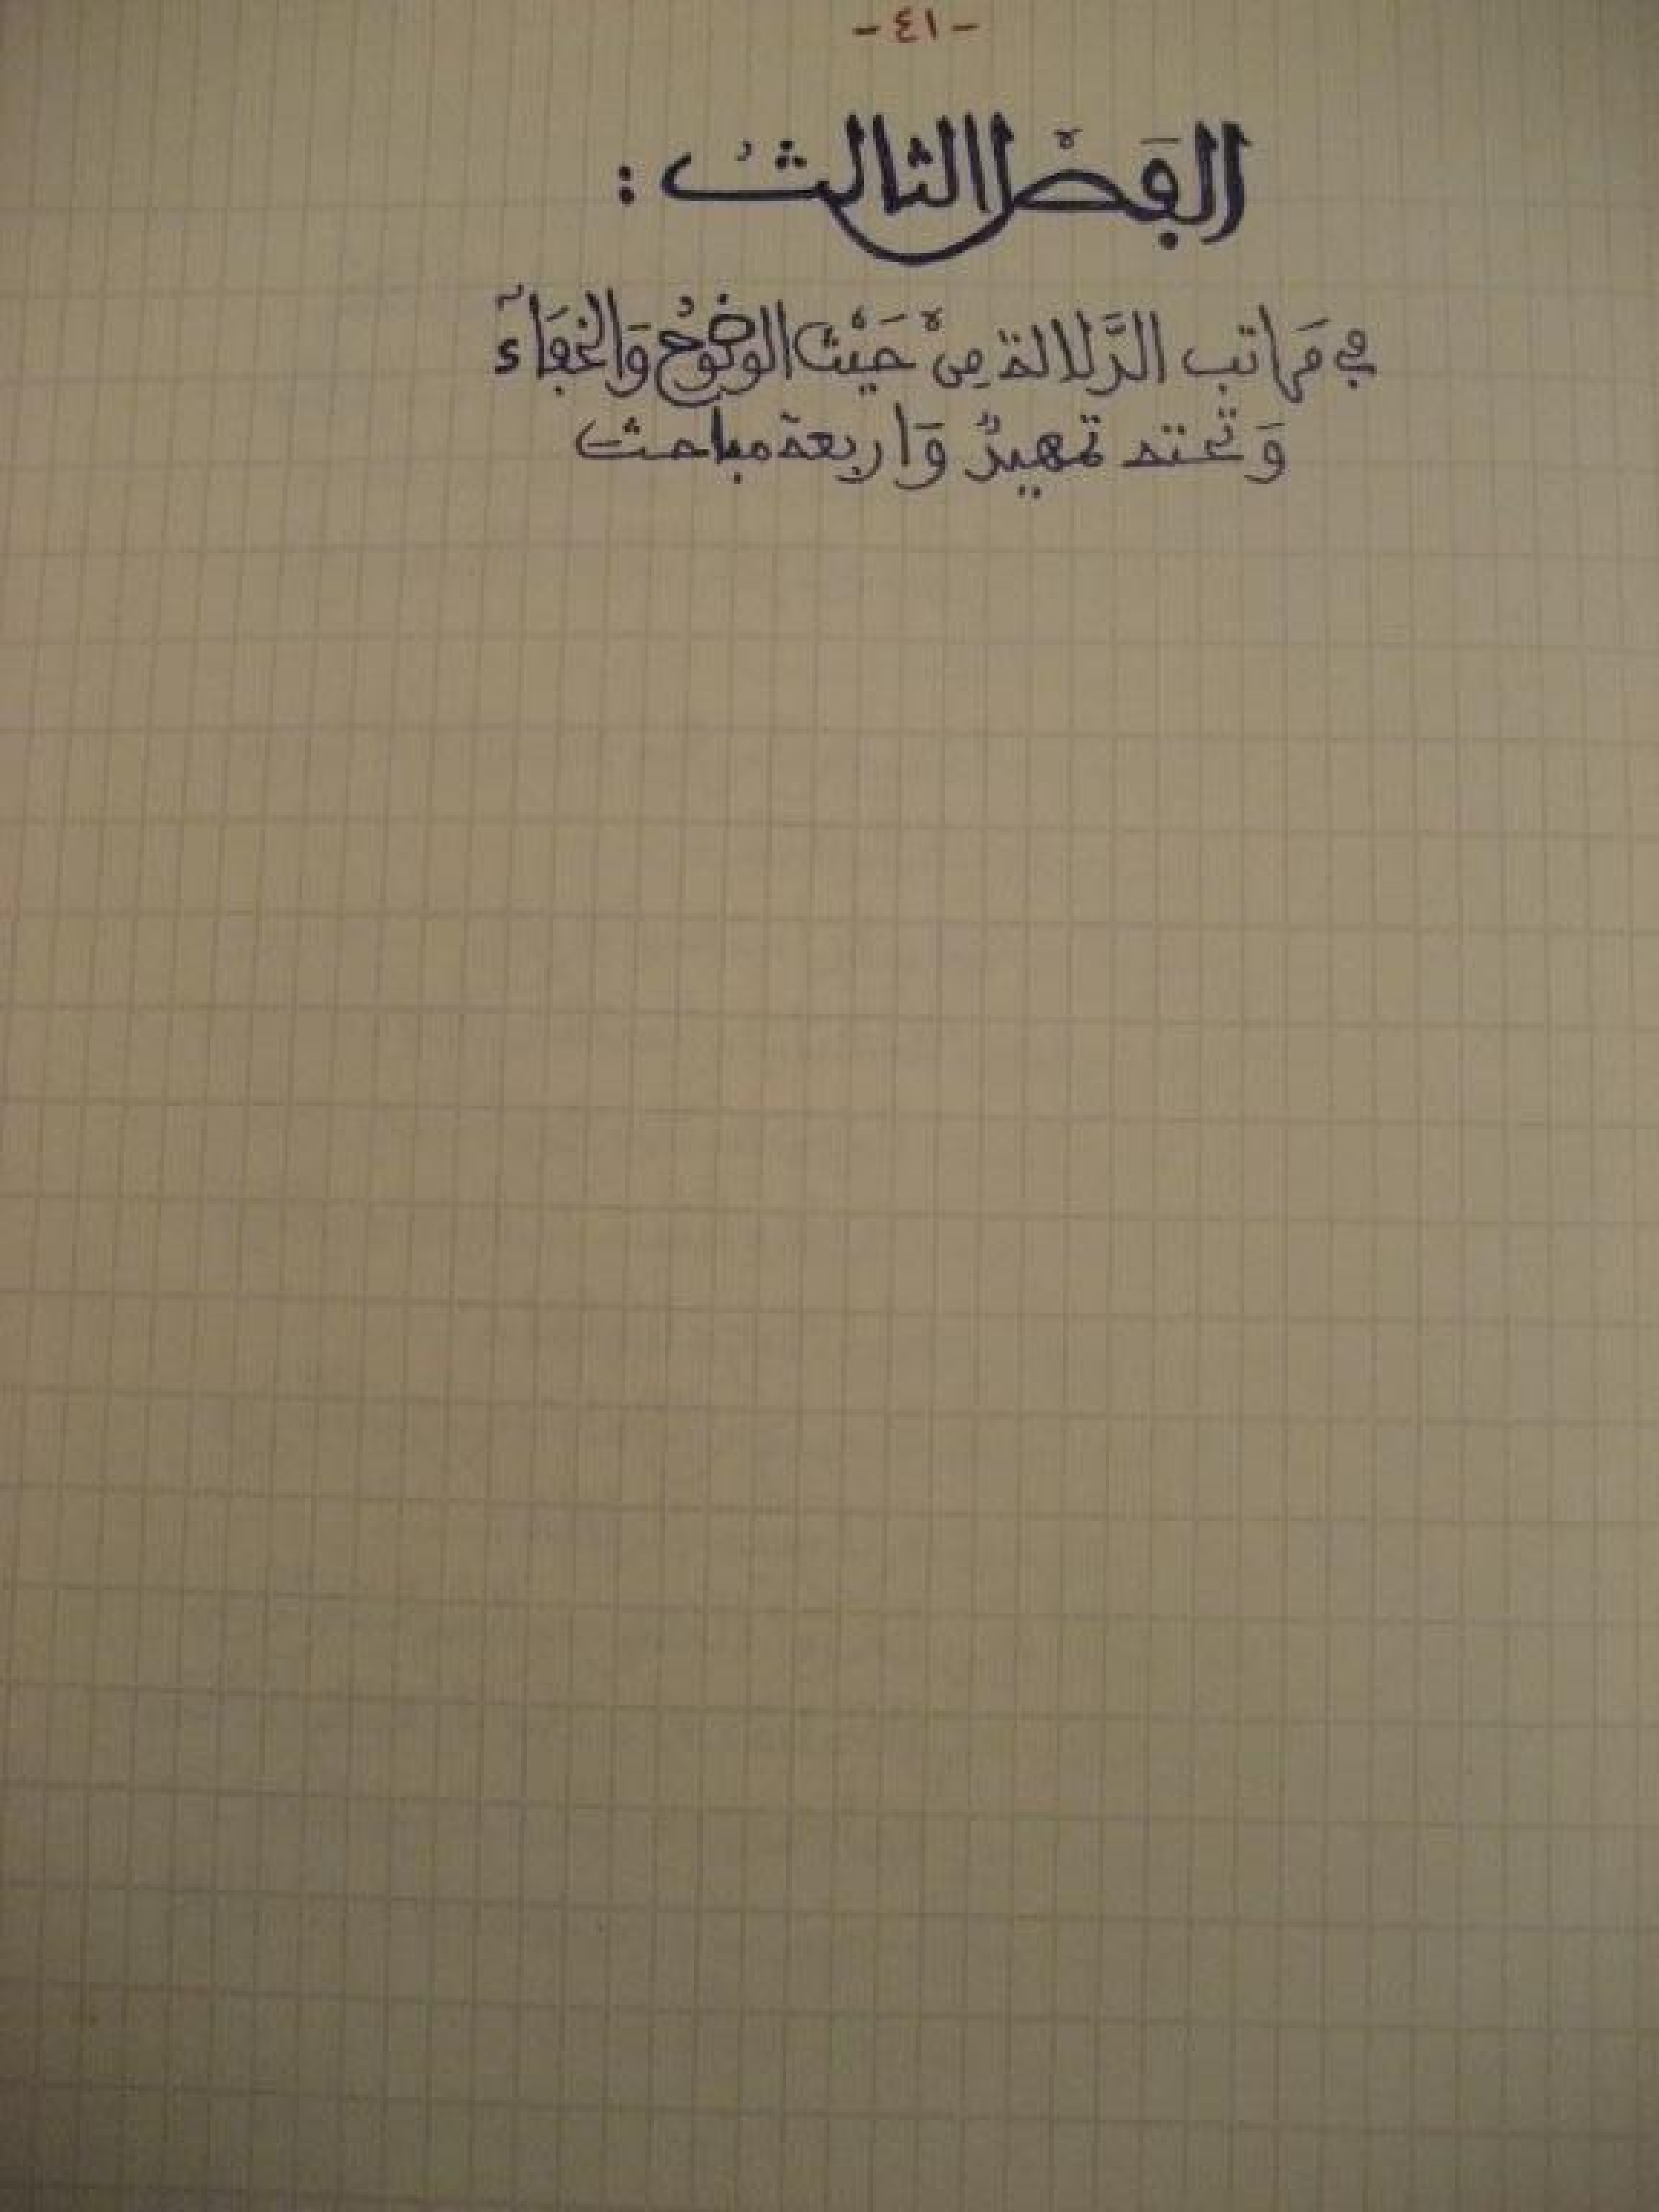 - ٤١ -
الفَصْل الثالثُ :
في مَراتب الدَّلالة مِنْ حَيْث الوضُوح وَالخفَآء
وَتحته تمهيدٌ وَاربعة مباحث